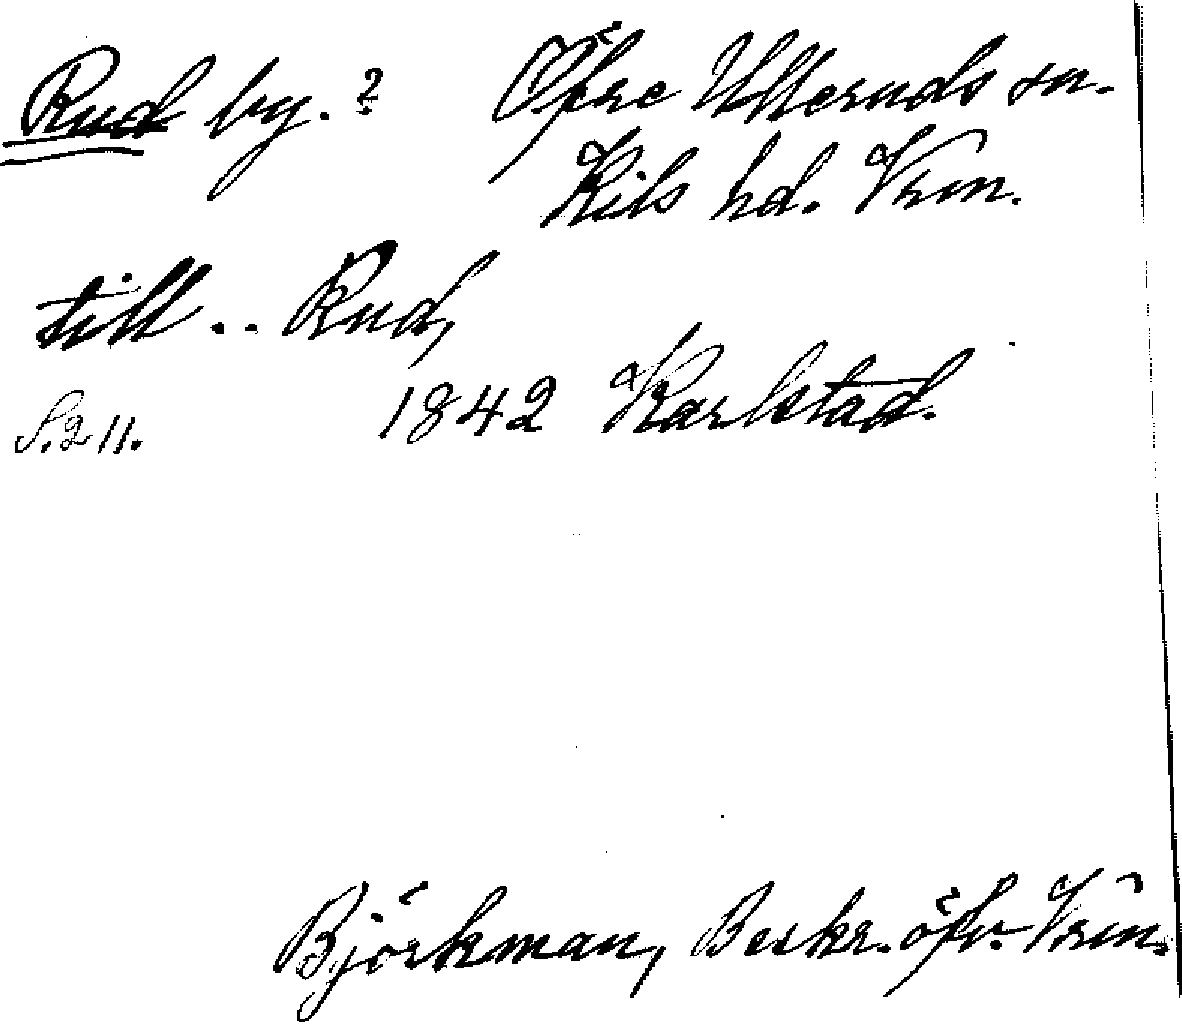 Rud by. ? Öfre Ulleruds sn.
Kils hd. Vrm.
till .. Rud,
S. 211. 1842 Karlstad.
Björkman, Beskr. öfv. Vrm.